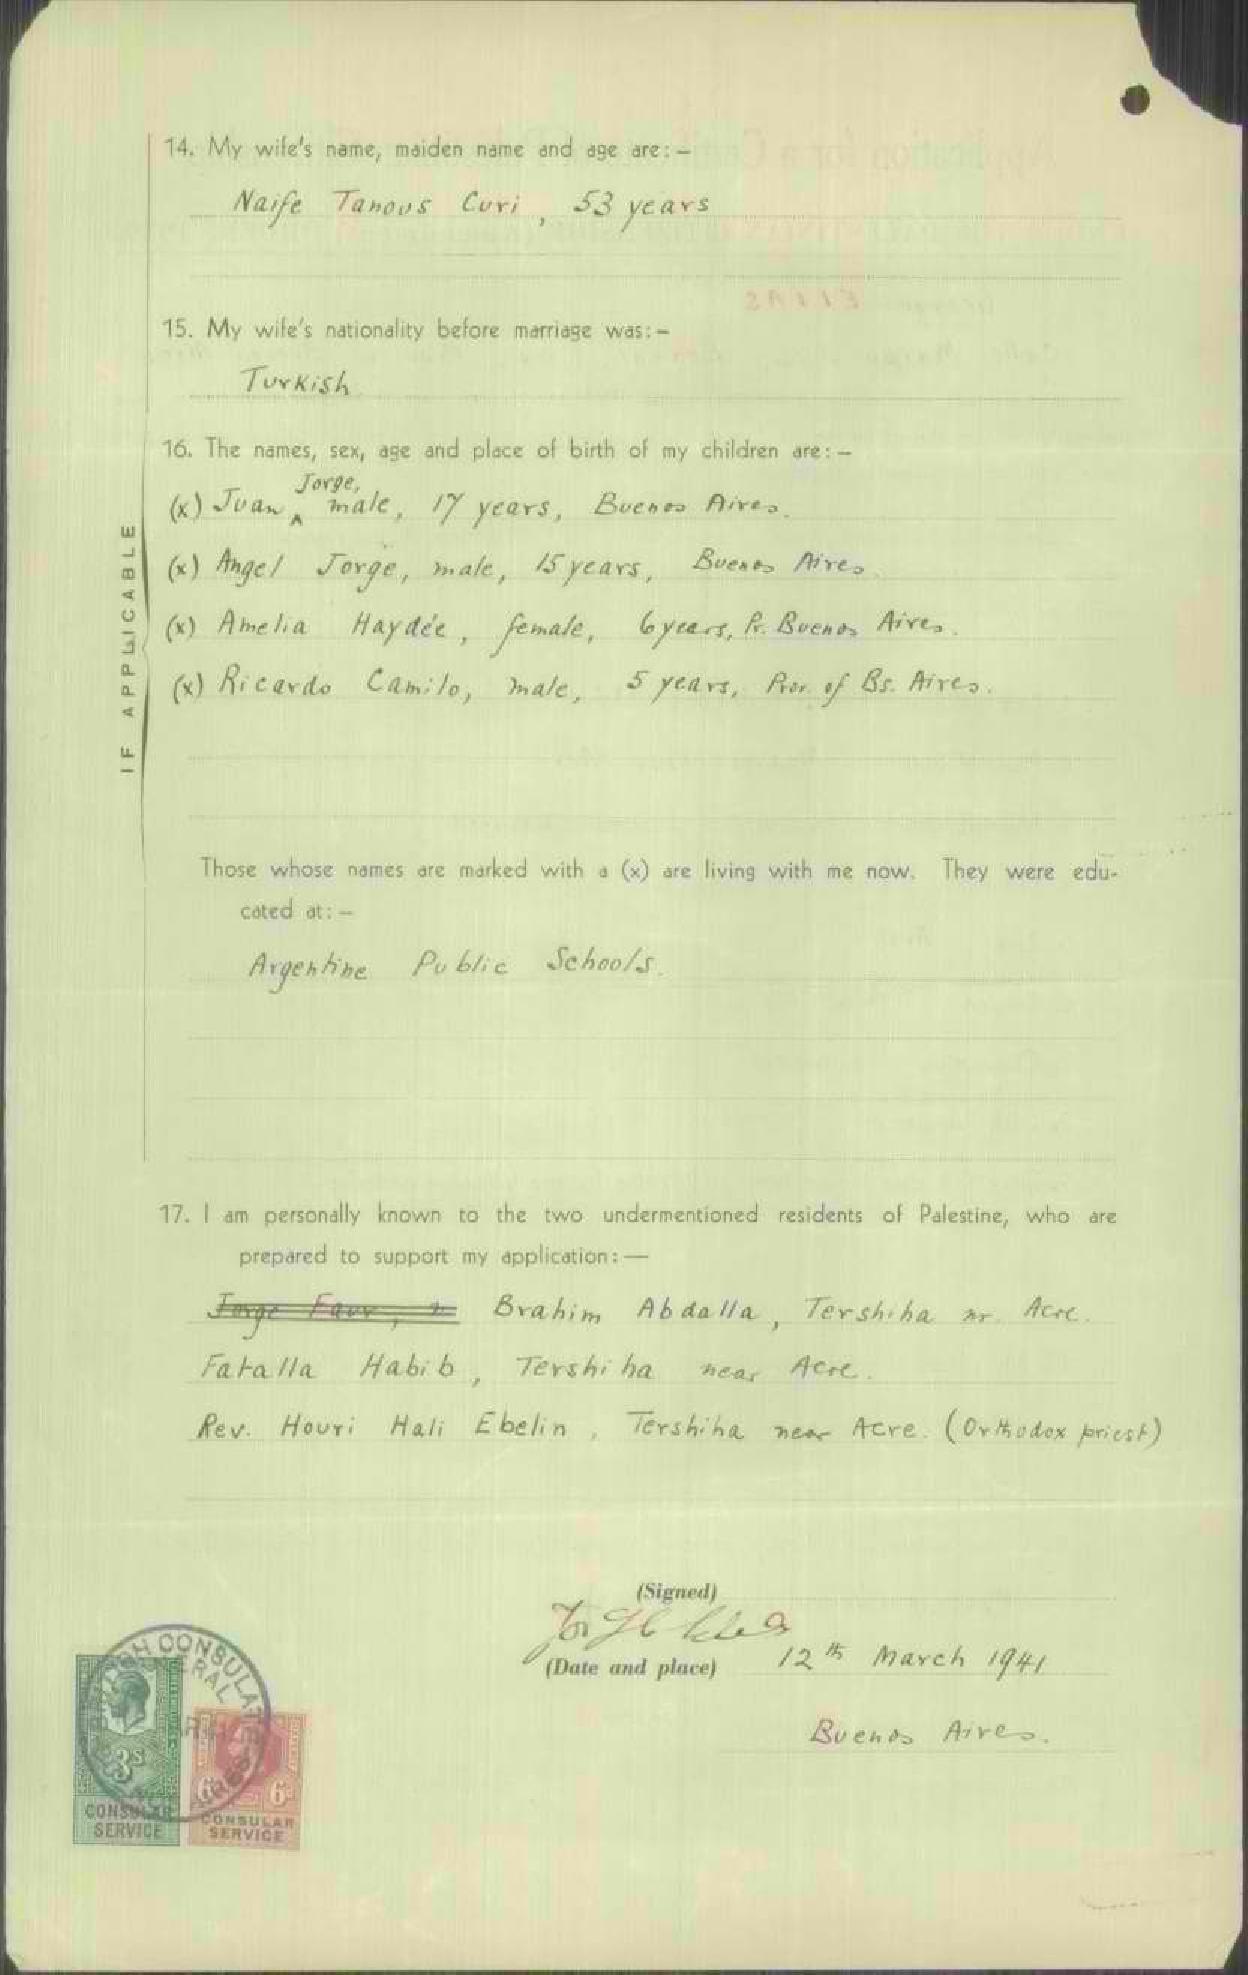 14. My wife's name, maiden name and age are:–
Naife Tanous Curi, 53 years
15. My wife's nationality before marriage was:–
Turkish
IF APPLICABLE
16. The names, sex, age and place of birth of my children are:–
(x) Juan Jorge, male, 17 years, Buenos Aires.
(x) Angel Jorge, male, 15 years, Buenos Aires.
(x) Amelia Haydée, female, 6 years, Pr. Buenos Aires.
(x) Ricardo Camilo, male, 5 years, Prov. of Bs. Aires.
Those whose names are marked with a (x) are living with me now. They were edu-
cated at:–
Argentine Public Schools.
17. I am personally known to the two undermentioned residents of Palestine, who are
prepared to support my application:—
Jorge Faur, Brahim Abdalla, Tershiha nr. Acre.
Fatalla Habib, Tershiha near Acre.
Rev. Houri Hali Ebelin, Tershiha near Acre. (Orthodox priest)
(Signed)
(Date and place) 12th March 1941
Buenos Aires.
BRITISH CONSULATE
GENERAL
3s
CONSULAR
SERVICE
6d 6d
CONSULAR
SERVICE